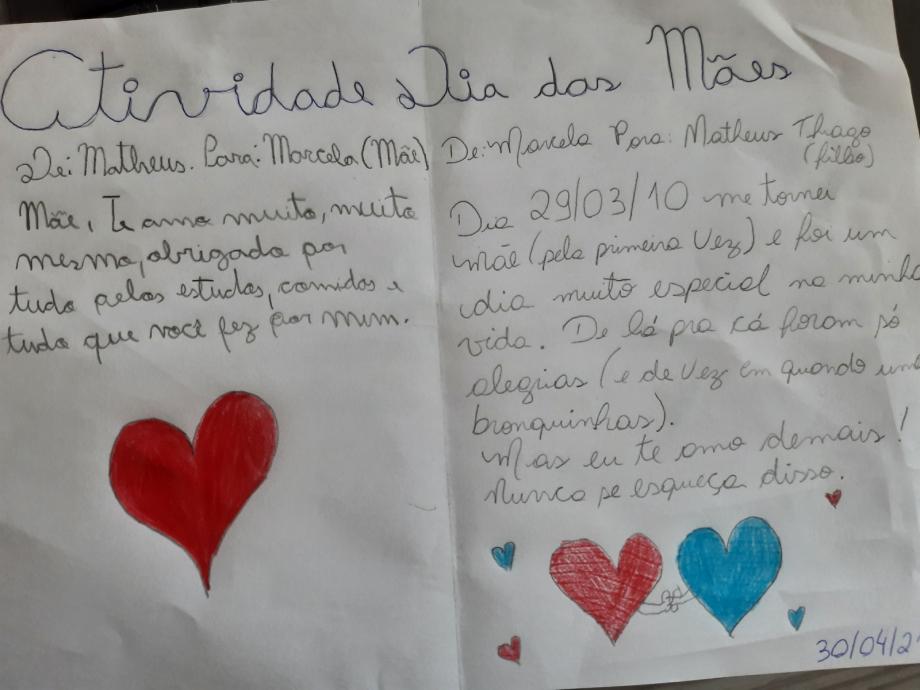 Atividade Dia das Mães
De: Matheus. Para: Marcela (Mãe)
Mãe, Te amo muito, muito
mesmo, obrigado por
tudo pelos estudos, comidas e
tudo que você fez por mim.
De: Marcela Para: Matheus Thiago
(filho)
Dia 29/03/10 me tornei
mãe (pela primeira vez) e foi um
dia muito especial na minha
vida. De lá pra cá foram só
alegrias (e de vez em quando uma
bronquinhas).
Mas eu te amo demais!
Nunca se esqueça disso.
30/04/2